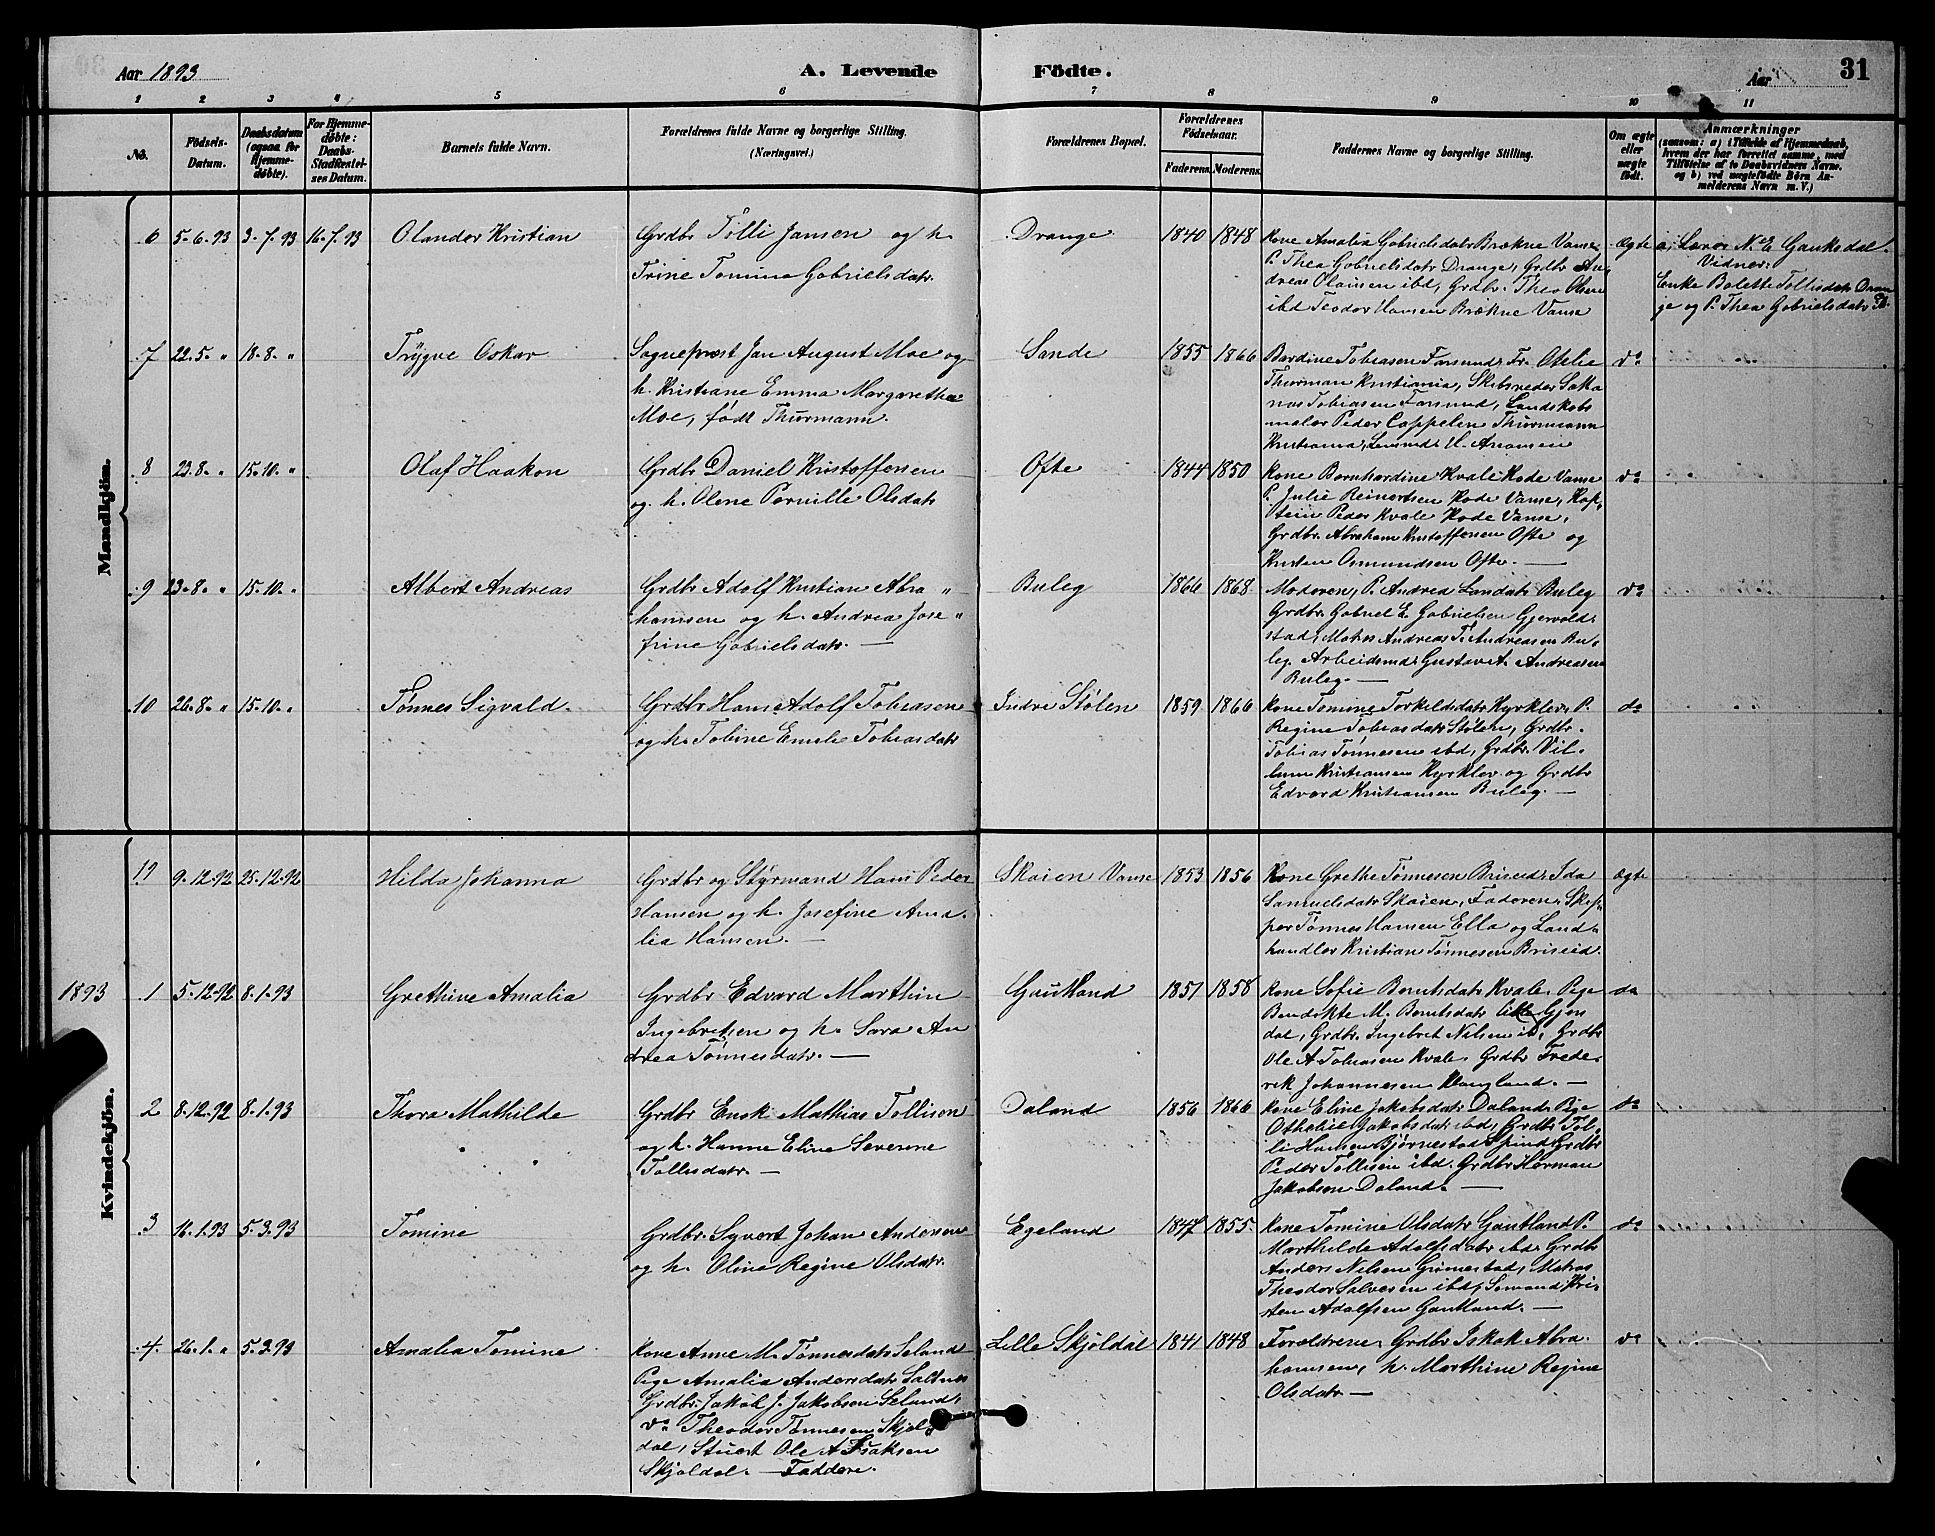 Aar 1893
A. Levende Födte.
Aar
31
1 2 3 4 5 6 7 8 9 10 11
No.
Födsels-Datum.
Daabsdatum (ogsaa for Hjemme-döbte).
For Hjemme-döbte: Daabs-Stadfæstel-ses Datum.
Barnets fulde Navn.
Forældrenes fulde Navne og borgerlige Stilling. (Næringsvei.)
Forældrenes Bopæl.
Forældrenes Födselsaar.
Faderens. Moderens.
Faddernes Navne og borgerlige Stilling.
Om ægte eller uægte födt.
Anmærkninger
(saasom: a) i Tilfælde af Hjemmedaab,
hvem der har forrettet samme, med
Tilföielse af to Daabsvidners Navne,
og b) ved uægtefödte Börn An-
melderens Navn m. V.)
Mandkjön.
6 5.6.93 3.7.93 16.7.93 Olander Kristian
Grdbr Tölli Jansen og h.
Trine Tomine Gabrielsdatr.
Drange 1840 1848
Kone Amalia Gabrielsdatr Brækne Vanse
P. Thea Gabrielsdatr Drange, Grdbr An-
dreas Olausen ibd, Grdbr. Theo Olsen
ibd Teodor Hansen Brækne Vanse
ægte
a, Lærer N. E. Gauksdal
Vidner:
Enke Bolette Tollisdatr Dran
ge og P. Thea Gabrielsdatr D.
7 22.5. " 18.8. " Trygve Oskar
Sogneprest Jan August Moe og
h. Kristiane Emma Margaretha
Moe, født Thurmann.
Sande 1855 1866
Bardine Tobiasen Farsund, Fr. Otelie
Thurman Kristiania, Skibsreder Saka
rias Tobiasen Farsund, Landskabs
maler Peder Cappelen Thurmann
Kristiania,
do
8 23.8. " 15.10. " Olaf Haakon
Grdbr Daniel Kristoffersen
og h. Olene Pernille Olsdatr
Ofte 1844 1850
Kone Bernhardine Kvale Hode Vanse
P. Julie Reinertsen Hode Vanse, Kap-
tein Peder Kvale Hode Vanse,
Grdbr. Abraham Kristoffersen Ofte og
Kristen Osmundsen Ofte. —
do
9 23.8. " 15.10. " Albert Andreas
Grdbr Adolf Kristian Abra "
hamsen og h. Andrea Jose "
frine Gabrielsdatr. —
Buleg 1866 1868
Moderen, P. Andrea Larsdatr Buleg
Grdbr. Gabriel E. Gabrielsen Gjervold
stad, Matros Andreas T. Andreasen Bu-
leg Arbeidsmd. Gustav A. Andreasen
Buleg. —
do
10 26.8. " 15.10. " Tønnes Sigvald.
Grdbr Hans Adolf Tobiasen
og h. Tobine Emelie Tobiasdatr
Indre Stølen 1859 1866
Kone Tomine Torkeldsdatr Kyrklev. P.
Regine Tobiasdatr Stølen, Grdbr.
Tobias Tønnesen ibd, Grdbr. Vil-
lum Kristiansen Kyrklev og Grdbr
Edvard Kristiansen Buleg. —
do
Kvindekjön.
19 9.12.92 25.12.92 Hilda Johanna
Grdbr og Styrmand Hans Peder
Hansen og h. Josefine Ama-
lia Hansen. —
Skaien Vanse 1853 1856
Kone Grethe Tønnesen Briseid, Ida
Samuelsdatr Skaien, Faderen, Skip-
per Tønnes Hansen Ella og Land-
handler Kristian Tønnesen Briseid.
ægte
1893 1 5.12.92 8.1.93 Grethine Amalia
Grdbr Edvard Marthin
Ingebretsen og h. Sara An
drea Tønnesdatr. —
Gautland 1851 1858
Kone Sofie Berntsdatr Kvale. Pige
Bendikte M. Berntsdatr lille Gjer
dal, Grdbr. Ingebret Nilsen ib, Grdbr
Ole A Tobiasen Kvale. Grdbr Frede-
rik Johannesen Haugland. —
do
2 8.12.92 8.1.93 Thora Mathilde
Grdbr Enok Mathias Tollisen
og h. Hanne Eline Severine
Tollisdatr. —
Daland 1856 1866
Kone Eline Jakobsdatr Daland. Pige
Othalie Jakobsdatr ibd, Grdbr Tol-
li Hansen Bjørnestad Spind, Grdbr
Peder Tollisen ibd. Grdbr Herman
Jakobsen Daland. —
do
3 16.1.93 5.3.93 Tomine
Grdbr. Syvert Johan Andersen
og h. Oline Regine Olsdatr.
Egeland 1847 1855.
Kone Tomine Olsdatr Gautland P.
Marthilde Adolfsdatr ibd, Grdbr
Anders Nilsen Grimestad, Matros
Theodor Salvesen ibd, Sømand Kri-
sten Adolfsen Gautland. —
do
4. 26.1. " 5.3.93 Amalia Tomine
Kone Anne M. Tønnesdatr Seland
Pige Amalia Andersdatr Saltnes
Grdbr. Jakob J. Jakobsen Seland,
do Theodor Tønnesen Skjol
dal, Stuert Ole A Isaksen
Skjoldal. — Faddere.
Lille Skjoldal 1841 1848
Forældrene, Grdbr Iskak Abra-
hamsen, h. Marthine Regine
Olsdatr —
do